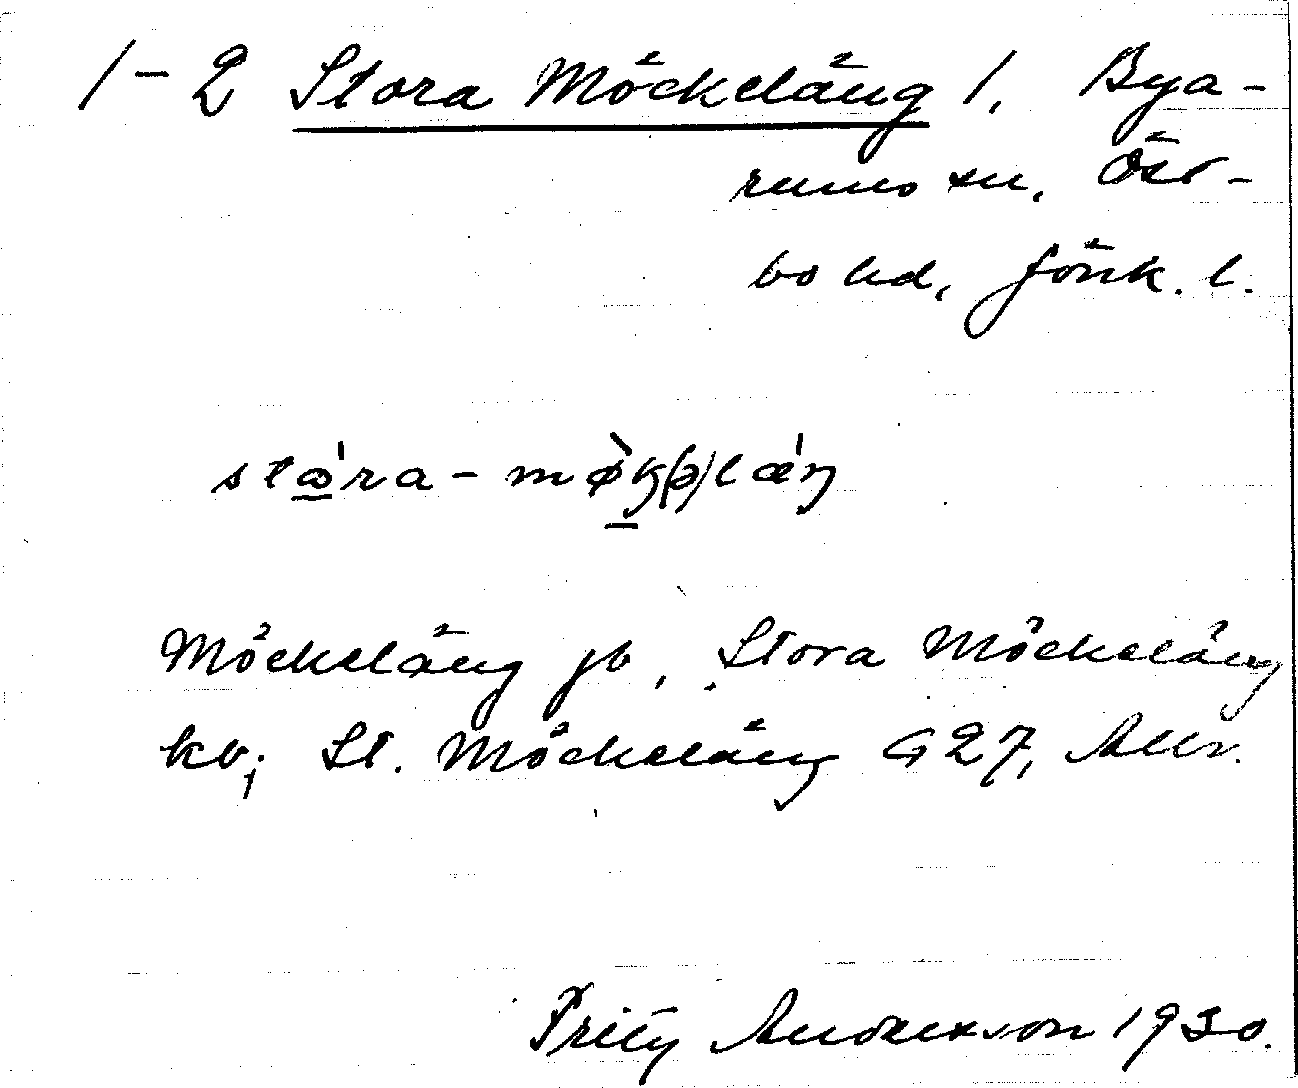 1-2 Stora Möckeläng 1, Bya-
rums sn, Öst-
bo hd, Jönk. l.
Möckeläng jb, Stora Möckeläng
kv; St. Möckeläng G 27,
Fritz Andersson 1930.